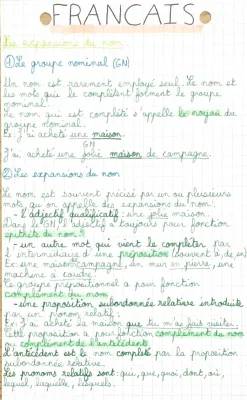 FRANCAIS
Les expansions du nom
① Le groupe nominal (GN)
Un nom est rarement employé seul. Le nom et
les mots qui le complètent forment le groupe
nominal.
Le nom qui est complété s'appelle le noyau du
groupe nominal.
Ex: J'ai acheté une maison.
GN
J'ai acheté une jolie maison de campagne.
② Les expansions du nom
Le nom est souvent précisé par un ou plusieurs
mots qu'on appelle des expansions du nom:
- l'adjectif qualificatif: une jolie maison.
Dans le GN, l'adjectif a toujours pour fonction
épithète du nom.
- un autre mot qui vient le compléter par
l'intermédiaire d'une préposition (souvent à, de, en)
Ex: une maison de campagne, un mur en pierre, une
machine à coudre.
Le groupe prépositionnel a pour fonction
complément du nom.
- une proposition subordonnée relative introduite
par un pronom relatif:
Ex: J'ai acheté la maison que tu m'as fait visiter.
Cette proposition a pour fonction complément du nom
ou complément de l'antécédent.
L'antécédent est le nom complété par la proposition
subordonnée relative.
Les pronoms relatifs sont: qui, que, quoi, dont, où,
lequel, laquelle, lesquels.